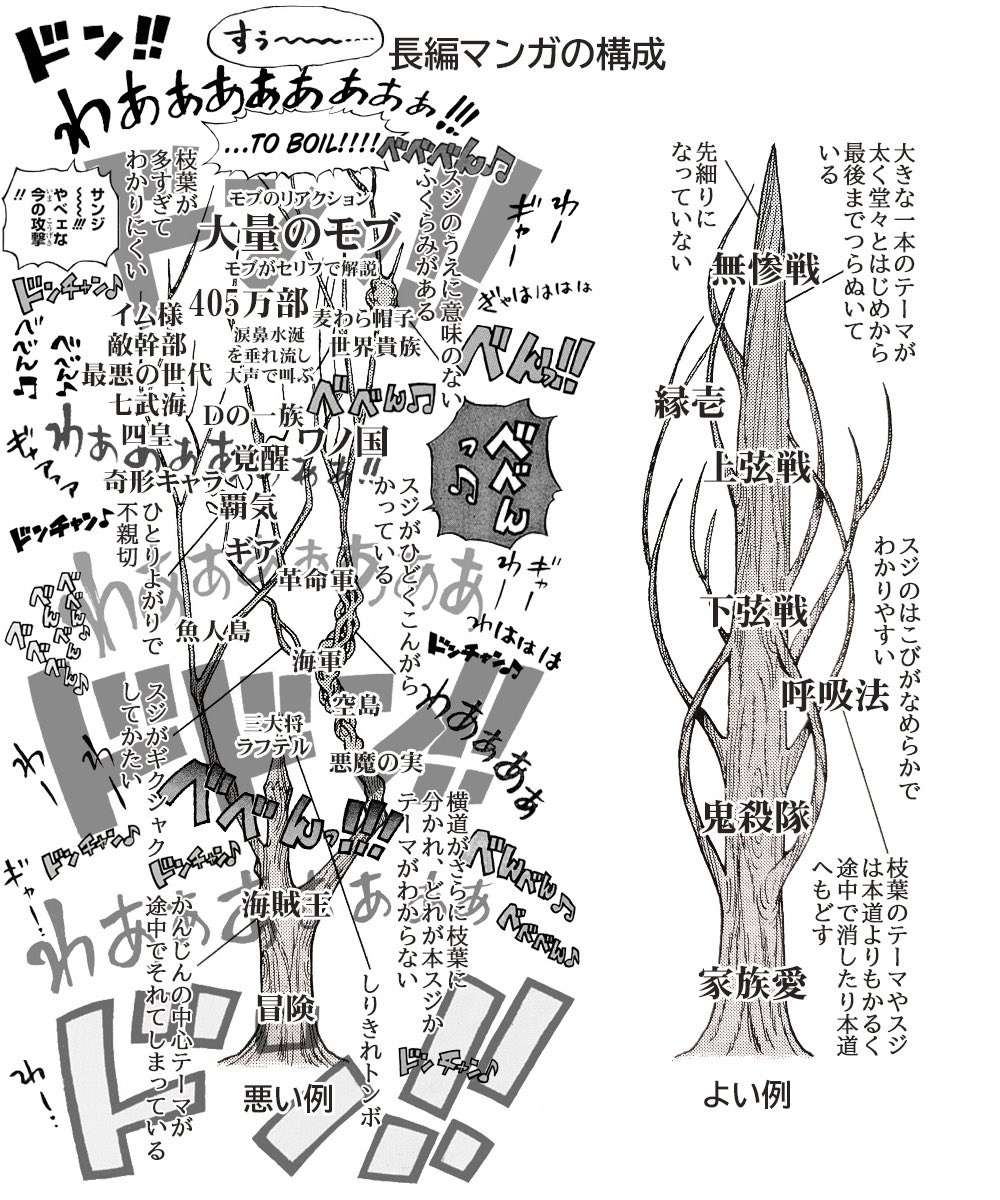 長編マンガの構成
ドン!!
すぅ〜〜〜……
わあぁぁぁぁぁぁぁぁ!!!
...TO BOIL!!!!
べべべん♪
サンジ
〜〜〜!!!
やべェな
今の攻撃
いま こうげき
!!
枝葉が
多すぎて
わかりにくい
モブのリアクション
大量のモブ
モブがセリフで解説
405万部
涙鼻水涎
を垂れ流し
大声で叫ぶ
麦わら帽子
世界貴族
スジのうえに意味のない
ふくらみがある
わー
ぎゃー
ぎゃはははは
べんっ!!
ドンチャン♪
イム様
敵幹部
最悪の世代
七武海
四皇
奇形キャラ
Dの一族
べべん♫
ワノ国
覚醒
覇気
ギア
革命軍
わあぁぁぁぁぁ!!
ギャアァァ
べべんっ♫
ドンチャン♪
ひとりよがりで
不親切
スジがひどくこんがら
かっている
わー
ギャー
わははは
ドンチャン♫
わあぁぁぁぁぁぁぁ
魚人島
海軍
空島
三大将
ラフテル
悪魔の実
スジがギクシャク
してかたい
ドドン!!
わあぁぁぁぁ
べべんっ!!!
横道がさらに枝葉に
分かれ、どれが本スジか
テーマがわからない
ドンチャン♪
ドンチャン♪
ギャー…
べんべん♪
べべべん♪
わあぁぁぁぁぁぁぁ
海賊王
かんじんの中心テーマが
途中でそれてしまっている
しりきれトンボ
冒険
わー…
ドンチャン♫
ドン!!
悪い例
先細りに
なっていない
大きな一本のテーマが
太く堂々とはじめから
最後までつらぬいて
いる
無惨戦
縁壱
上弦戦
下弦戦
スジのはこびがなめらかで
わかりやすい
呼吸法
鬼殺隊
枝葉のテーマやスジ
は本道よりもかるく
途中で消したり本道
へもどす
家族愛
よい例